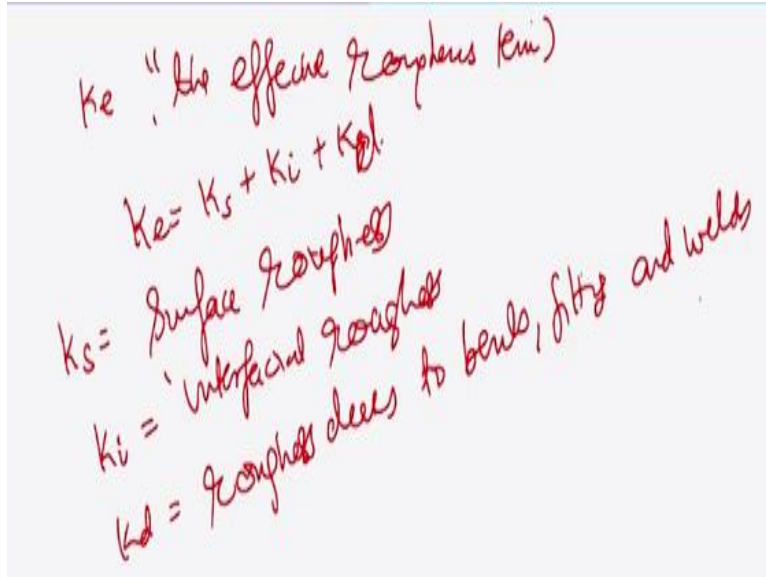 Ke "the effective roughness (emi)
Ke = Ks + Ki + Kd.
Ks = Surface roughness
Ki = interfacial roughness
Kd = roughness dues to bends, fitting and welds